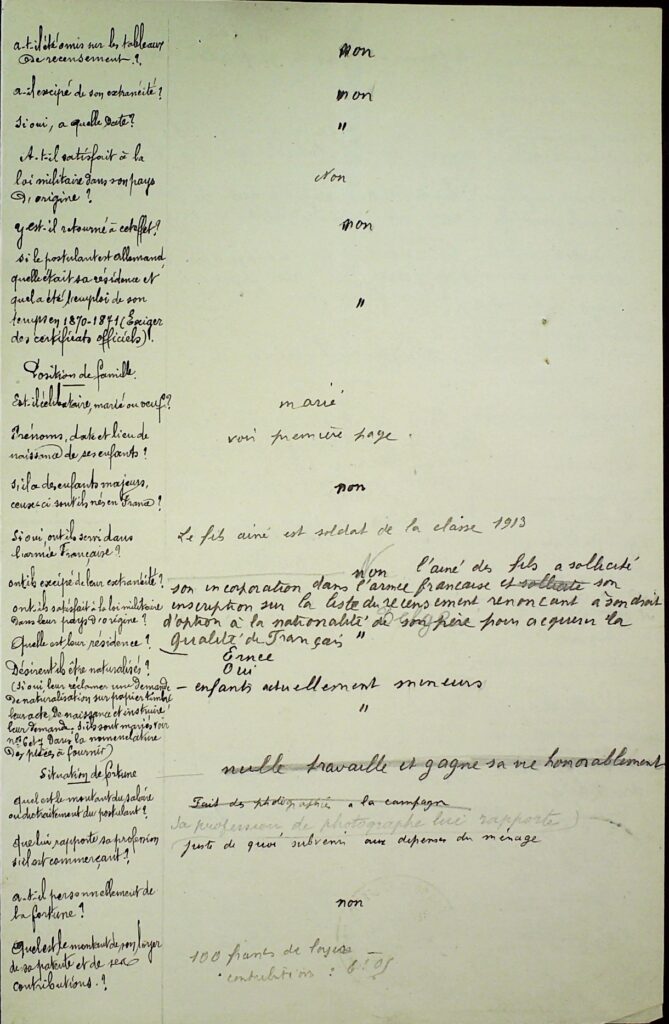 a-t-il été omis sur les tableaux
de recensement ?
non
a-il excipé de son extranéité ?
non
Si oui, a quelle date ?
"
A-t-il satisfait à la
loi militaire dans son pays
d'origine ?
Non
y est-il retourné à cet effet ?
non
si le postulant est allemand
quelle était sa résidence et
quel a été l'emploi de son
temps en 1870-1871 (Exiger
des certificats officiels).
"
Position de famille.
Est-il célibataire, marié ou veuf ?
marié
Prénoms, date et lieu de
naissance de ses enfants ?
voir première page.
S'il a des enfants majeurs,
ceux-ci sont ils nés en France ?
non
Si oui, ont ils servi dans
l'armée Française ?
Le fils ainé est soldat de la classe 1913
ont ils excipé de leur extranéité ?
Non l'ainé des fils a sollicité
son incorporation dans l'armée francaise et sollicité son
inscription sur la liste du recensement renoncant à son droit
d'option à la nationalité de son père pour acquerir la
qualité de Français
ont ils satisfait à la loi militaire
dans leur pays d'origine ?
"
Quelle est leur résidence ?
Ernée
Désirent ils être naturalisés ?
Oui
(Si oui, leur réclamer une demande
de naturalisation sur papier timbré
leur acte de naissance et instruire
leur demande. S'ils sont mariés voir
nos 6 et 7 dans la nomenclature
des pièces à fournir)
- enfants actuellement mineurs
"
Situation de fortune
nulle travaille et gagne sa vie honorablement
quel est le montant du salaire
ou du traitement du postulant ?
Fait des photographies a la campagne
Sa profession de photographe lui rapporte
que lui rapporte sa profession
s'il est commerçant ?
juste de quoi subvenir aux dépenses du ménage
a-t-il personnellement de
la fortune ?
non
Quel est le montant de son loyer
de sa patente et de ses
contributions. ?
100 francs de loyer -
contribution : 6f05